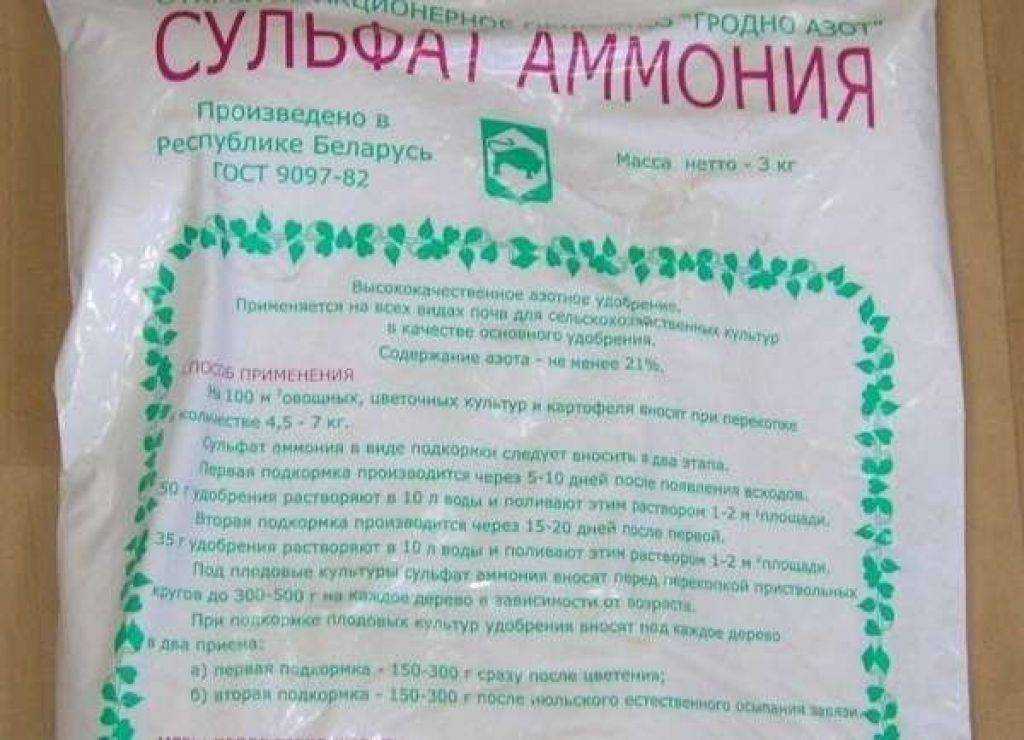 АКЦИОНЕРНОЕ "ГРОДНО АЗОТ"
СУЛЬФАТ АММОНИЯ
Произведено в
республике Беларусь
ГОСТ 9097-82
Масса нетто - 3 кг
Высококачественное азотное удобрение.
Применяется на всех видах почв для сельскохозяйственных культур
в качестве основного удобрения.
Содержание азота - не менее 21%.
СПОСОБ ПРИМЕНЕНИЯ
На 100 м² овощных, цветочных культур и картофеля вносят при перекопке
в количестве 4,5 - 7 кг.
Сульфат аммония в виде подкормки следует вносить в два этапа.
Первая подкормка производится через 5-10 дней после появления всходов.
50 г удобрения растворяют в 10 л воды и поливают этим раствором 1-2 м² площади.
Вторая подкормка производится через 15-20 дней после первой.
35 г удобрения растворяют в 10 л воды и поливают этим раствором 1-2 м² площади.
Под плодовые культуры сульфат аммония вносят перед перекопкой приствольных
кругов до 300-500 г на каждое дерево в зависимости от возраста.
При подкормке плодовых культур удобрения вносят под каждое дерево
в два приема:
а) первая подкормка - 150-300 г сразу после цветения;
б) вторая подкормка - 150-300 г после июльского естественного осыпания завязи.